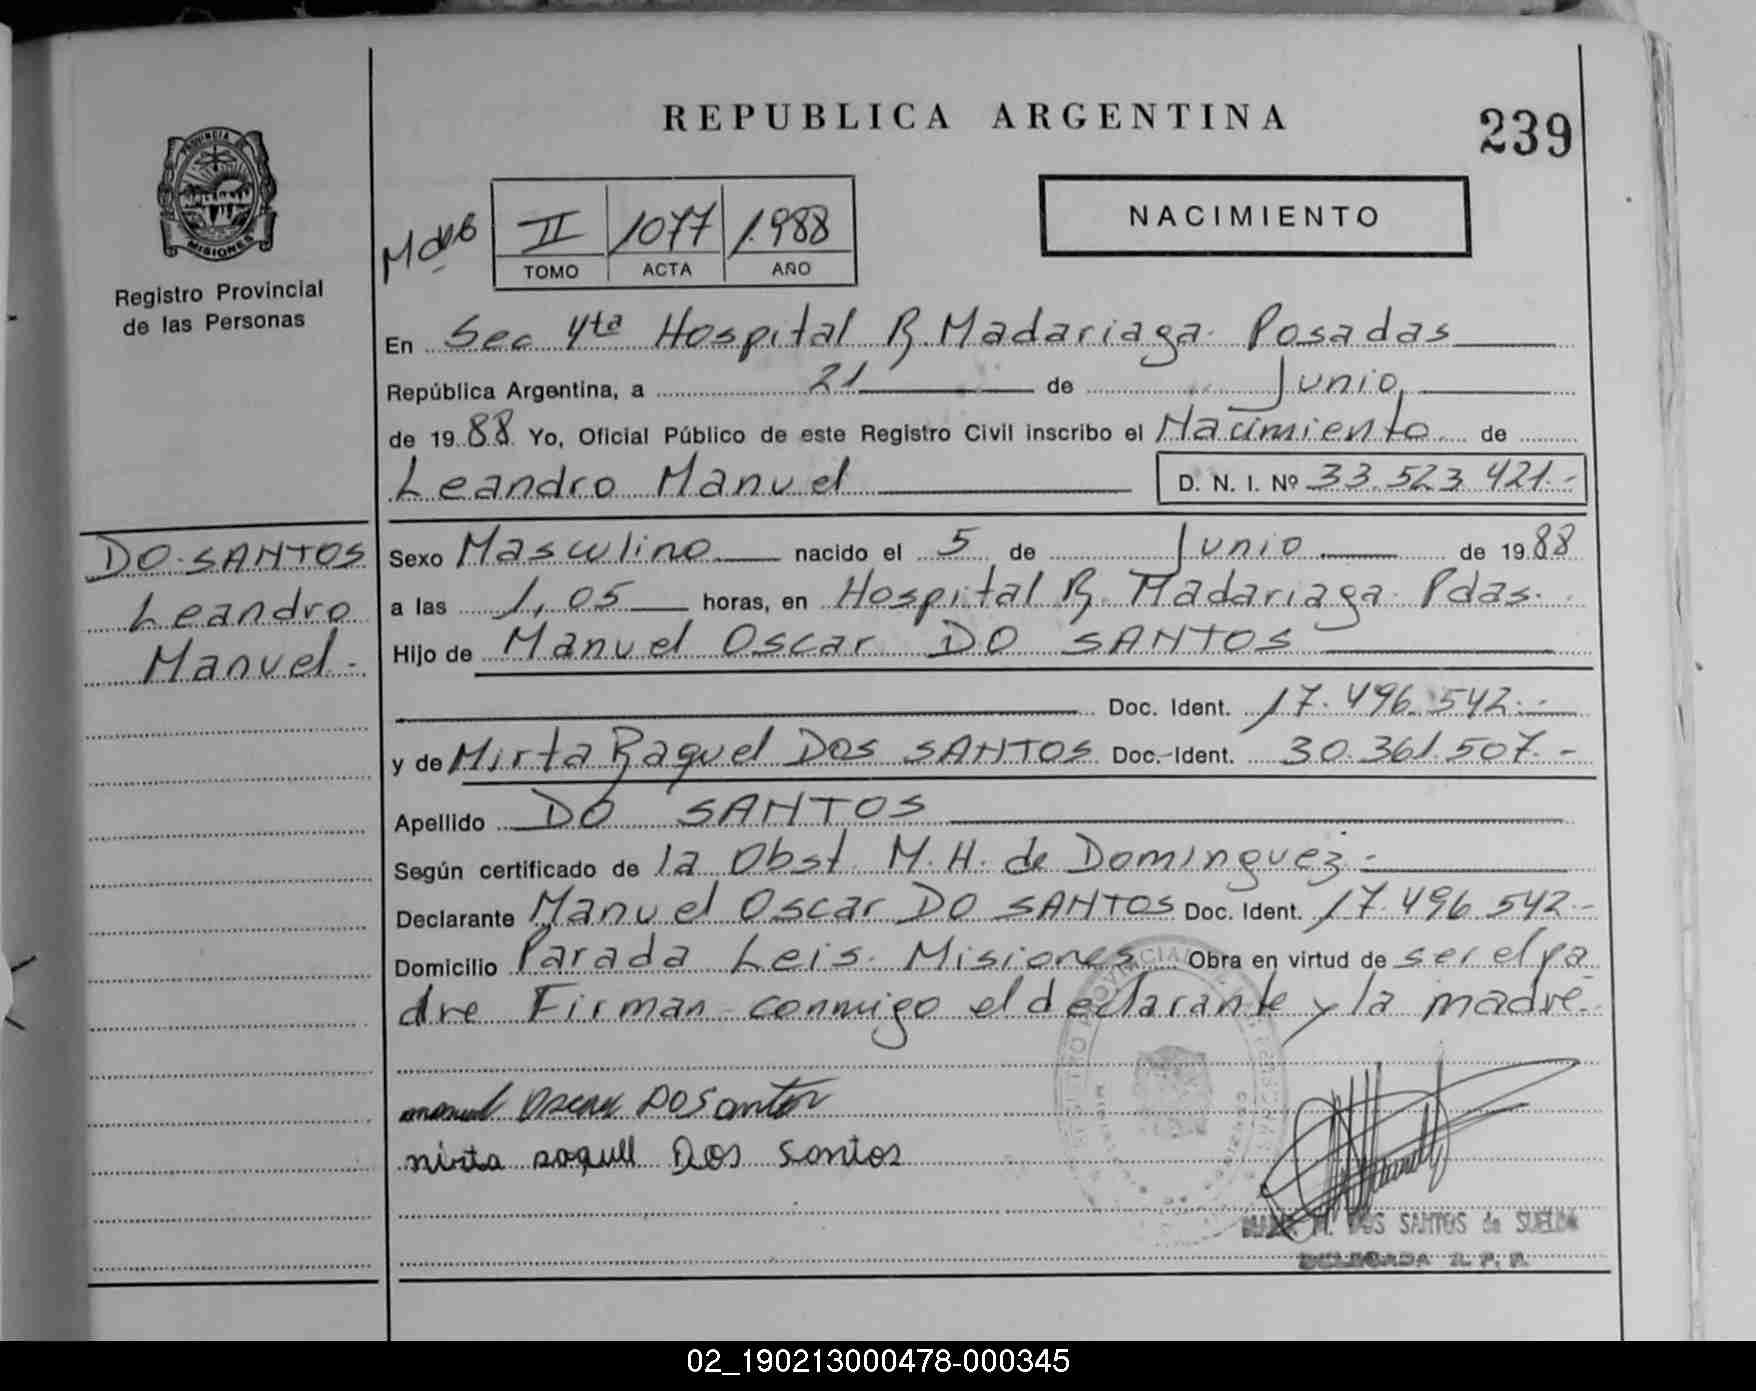 REPUBLICA ARGENTINA
239
PROVINCIA DE
MISIONES
Registro Provincial
de las Personas
II 1077 1.988
TOMO ACTA AÑO
NACIMIENTO
En Sec 4ta Hospital R. Madariaga. Posadas
República Argentina, a 21 de Junio,
de 1988 Yo, Oficial Público de este Registro Civil inscribo el Nacimiento de
Leandro Manuel D. N. I. Nº 33.523.421.-
DO SANTOS
Leandro
Manuel.-
Sexo Masculino nacido el 5 de Junio de 1988
a las 1,05 horas, en Hospital R. Madariaga. Pdas.
Hijo de Manuel Oscar DO SANTOS
Doc. Ident. 17.496.542.-
y de Mirta Raquel DOS SANTOS Doc.-Ident. 30.361.507.-
Apellido DO SANTOS
Según certificado de la Obst. M. H. de Dominguez.-
Declarante Manuel Oscar DO SANTOS Doc. Ident. 17.496.542-
Domicilio Parada Leis. Misiones Obra en virtud de ser el pa
dre Firman conmigo el declarante y la madre.
manuel oscar DO Santos
mirta raquell Dos Santos
DOS SANTOS de SUELDO
DELEGADA R. P. P.
02_190213000478-000345